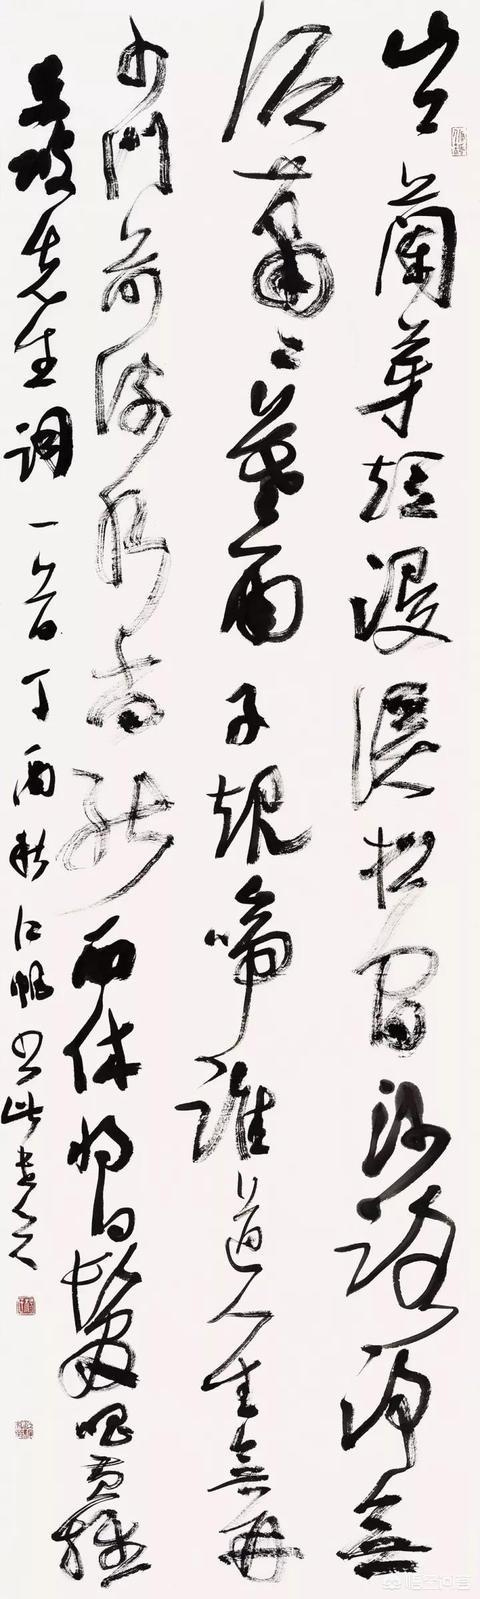 山下蘭芽短浸溪松間沙路净無
泥蕭〻暮雨子規啼誰道人生無再
少門前流水尚能西休將白髮唱黃雞
東坡先生詞一首丁酉秋江帆书
悟空问答